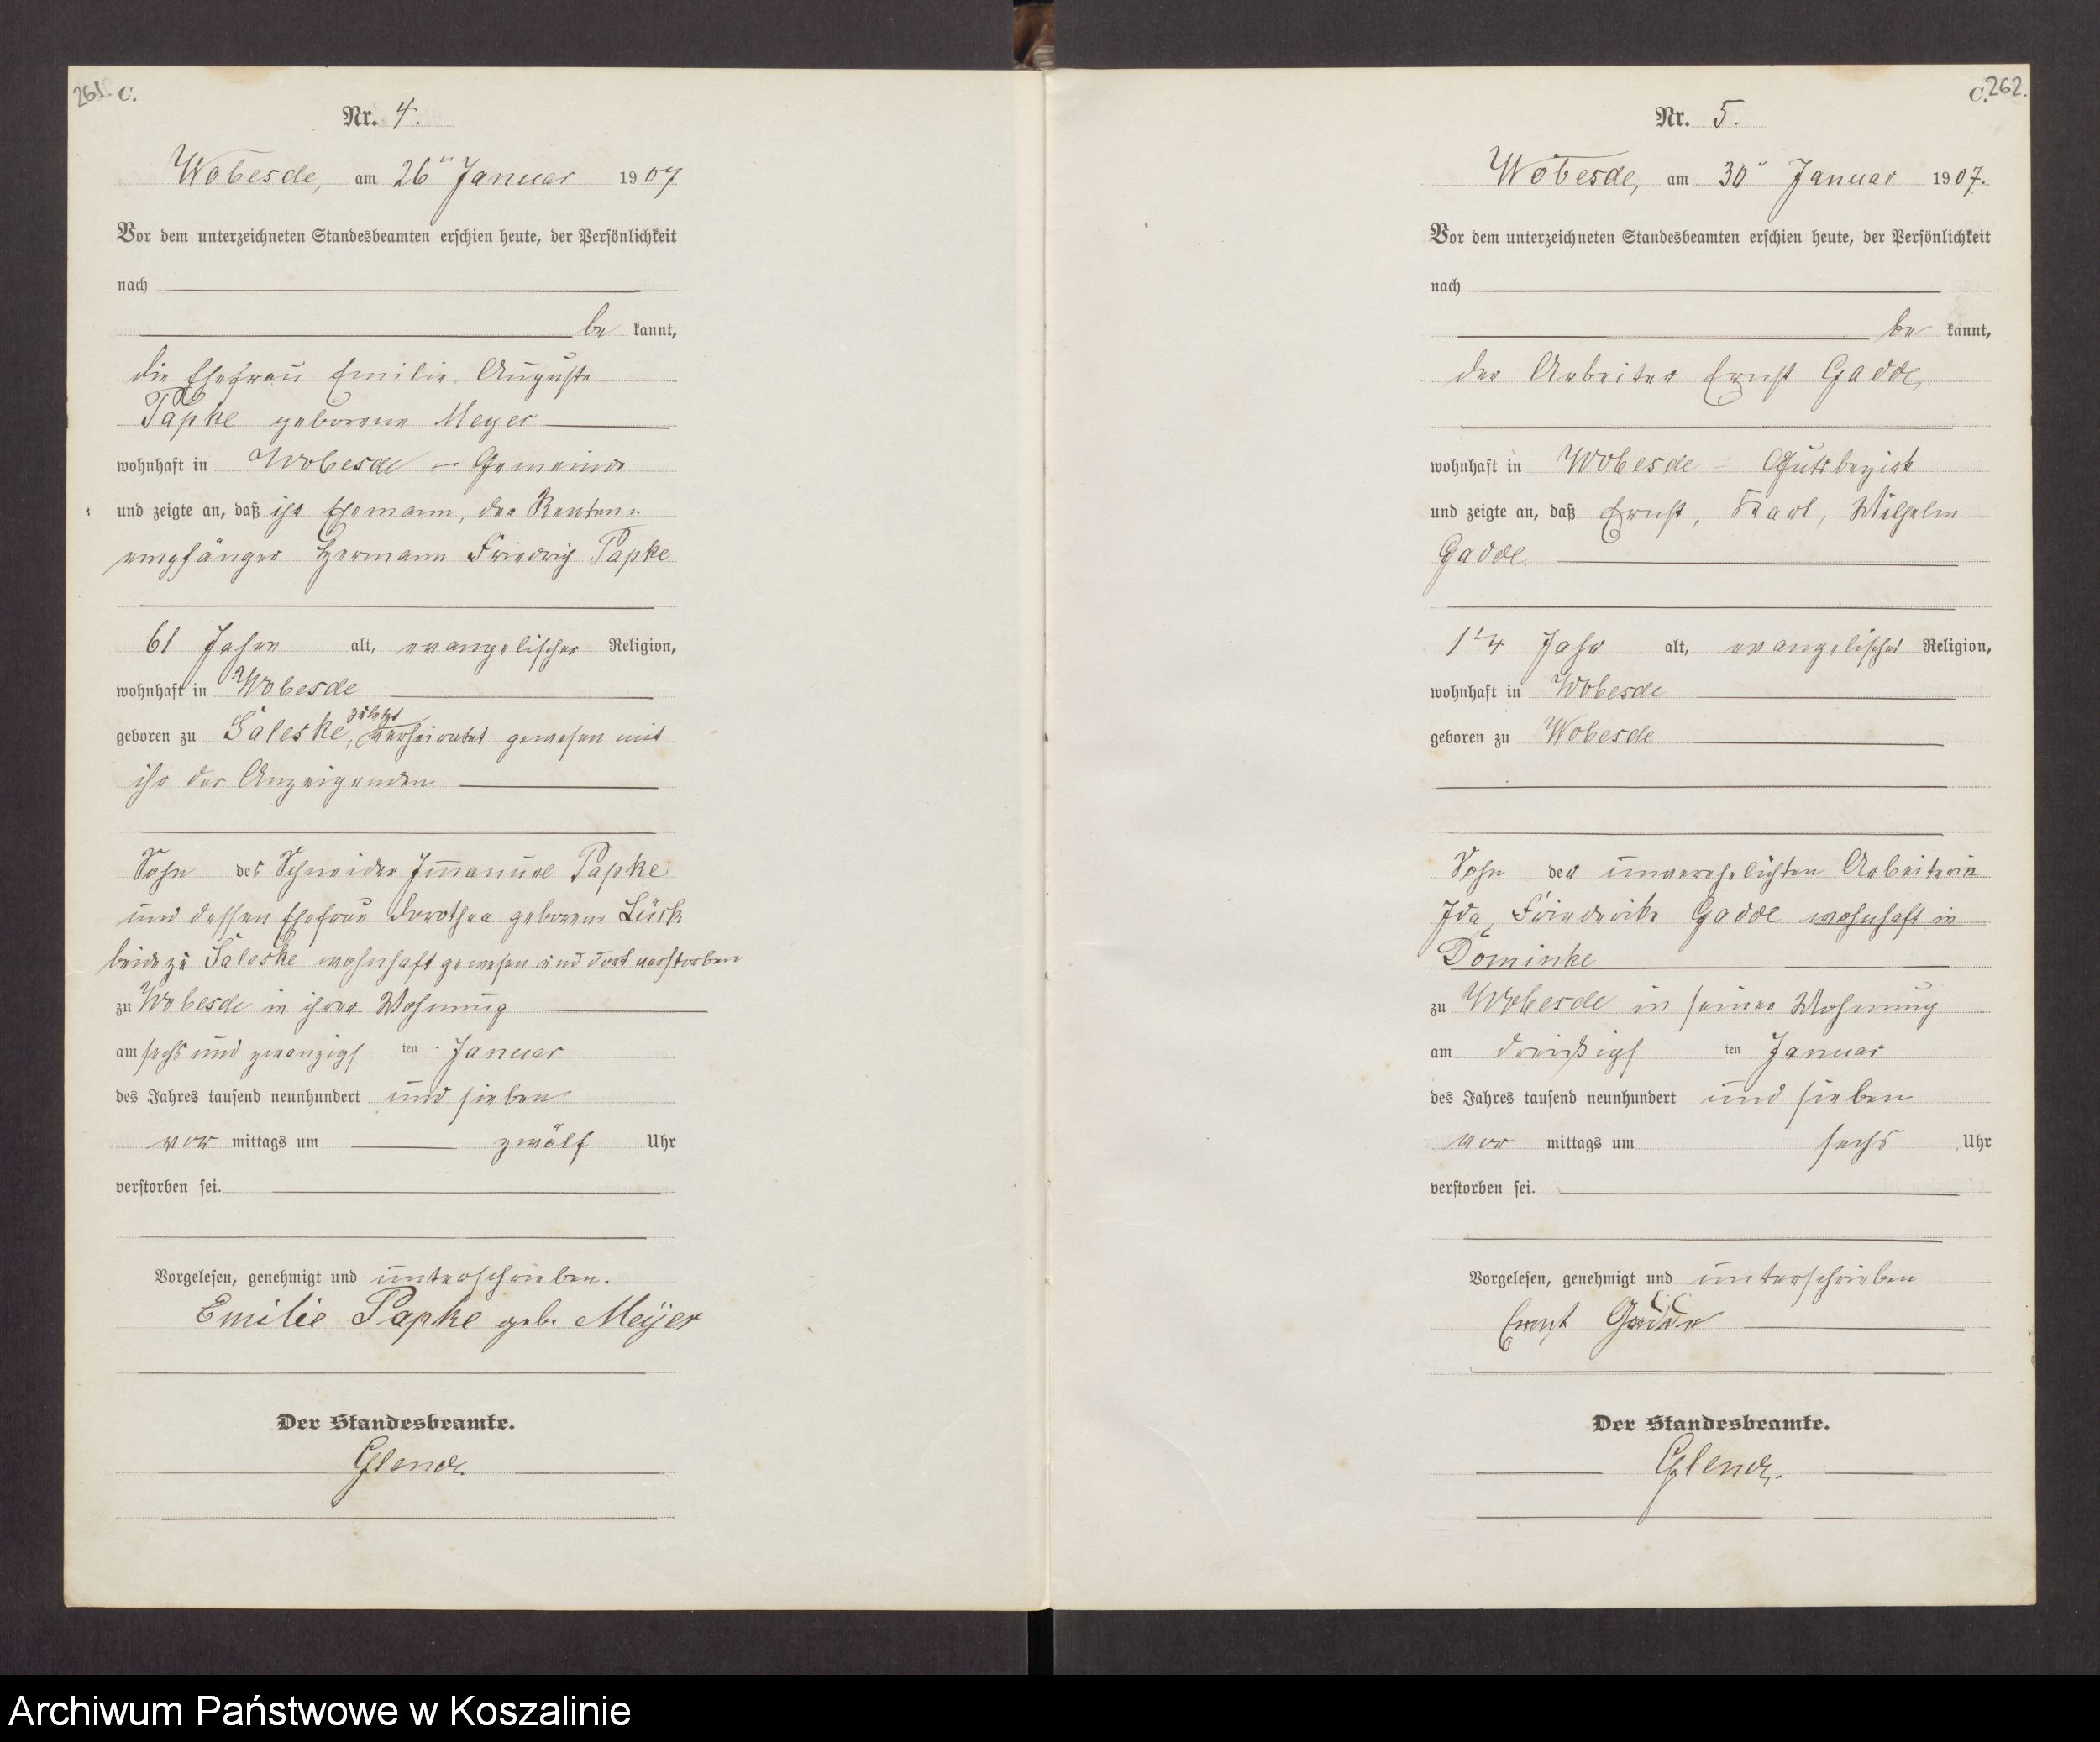 261. C.
Nr. 4.
Wobesde, am 26ten Januar 1907
Vor dem unterzeichneten Standesbeamten erschien heute, der Persönlichkeit
nach
be kannt,
die Ehefrau Emilie Auguste
Papke geborene Meyer
wohnhaft in Wobesde - Gemeinde
und zeigte an, daß ihr Ehemann, der Renten-
empfänger Hermann Friedrich Papke
61 Jahre alt, evangelischer Religion,
wohnhaft in Wobesde
geboren zu Saleske, zuletzt verheiratet gewesen mit
ihr der Anzeigenden
Sohn des Schneider Immanuel Papke
und dessen Ehefrau Dorothea geborene
beide zu Saleske wohnhaft gewesen und dort verstorben
zu Wobesde in ihrer Wohnung
am sechs und zwanzigs ten Januar
des Jahres tausend neunhundert und sieben
vor mittags um zwölf Uhr
verstorben sei.
Vorgelesen, genehmigt und unterschrieben.
Emilie Papke geb. Meijer
Der Standesbeamte.
C. 262.
Nr. 5.
Wobesde, am 30 Januar 1907.
Vor dem unterzeichneten Standesbeamten erschien heute, der Persönlichkeit
nach
be kannt,
der Arbeiter Ernst Gadde,
wohnhaft in Wobesde - Gutsbezirk
und zeigte an, daß Ernst, Karl, Wilhelm
Gadde.
1 1/4 Jahr alt, evangelischer Religion,
wohnhaft in Wobesde
geboren zu Wobesde
Sohn der unverehelichten Arbeiterin
Ida, Friederike Gadde wohnhaft in
Dominke
zu Wobesde in seiner Wohnung
am dreißigs ten Januar
des Jahres tausend neunhundert und sieben
vor mittags um sechs Uhr
verstorben sei.
Vorgelesen, genehmigt und unterschrieben
Ernst Gadde
Der Standesbeamte.
Archiwum Państwowe w Koszalinie